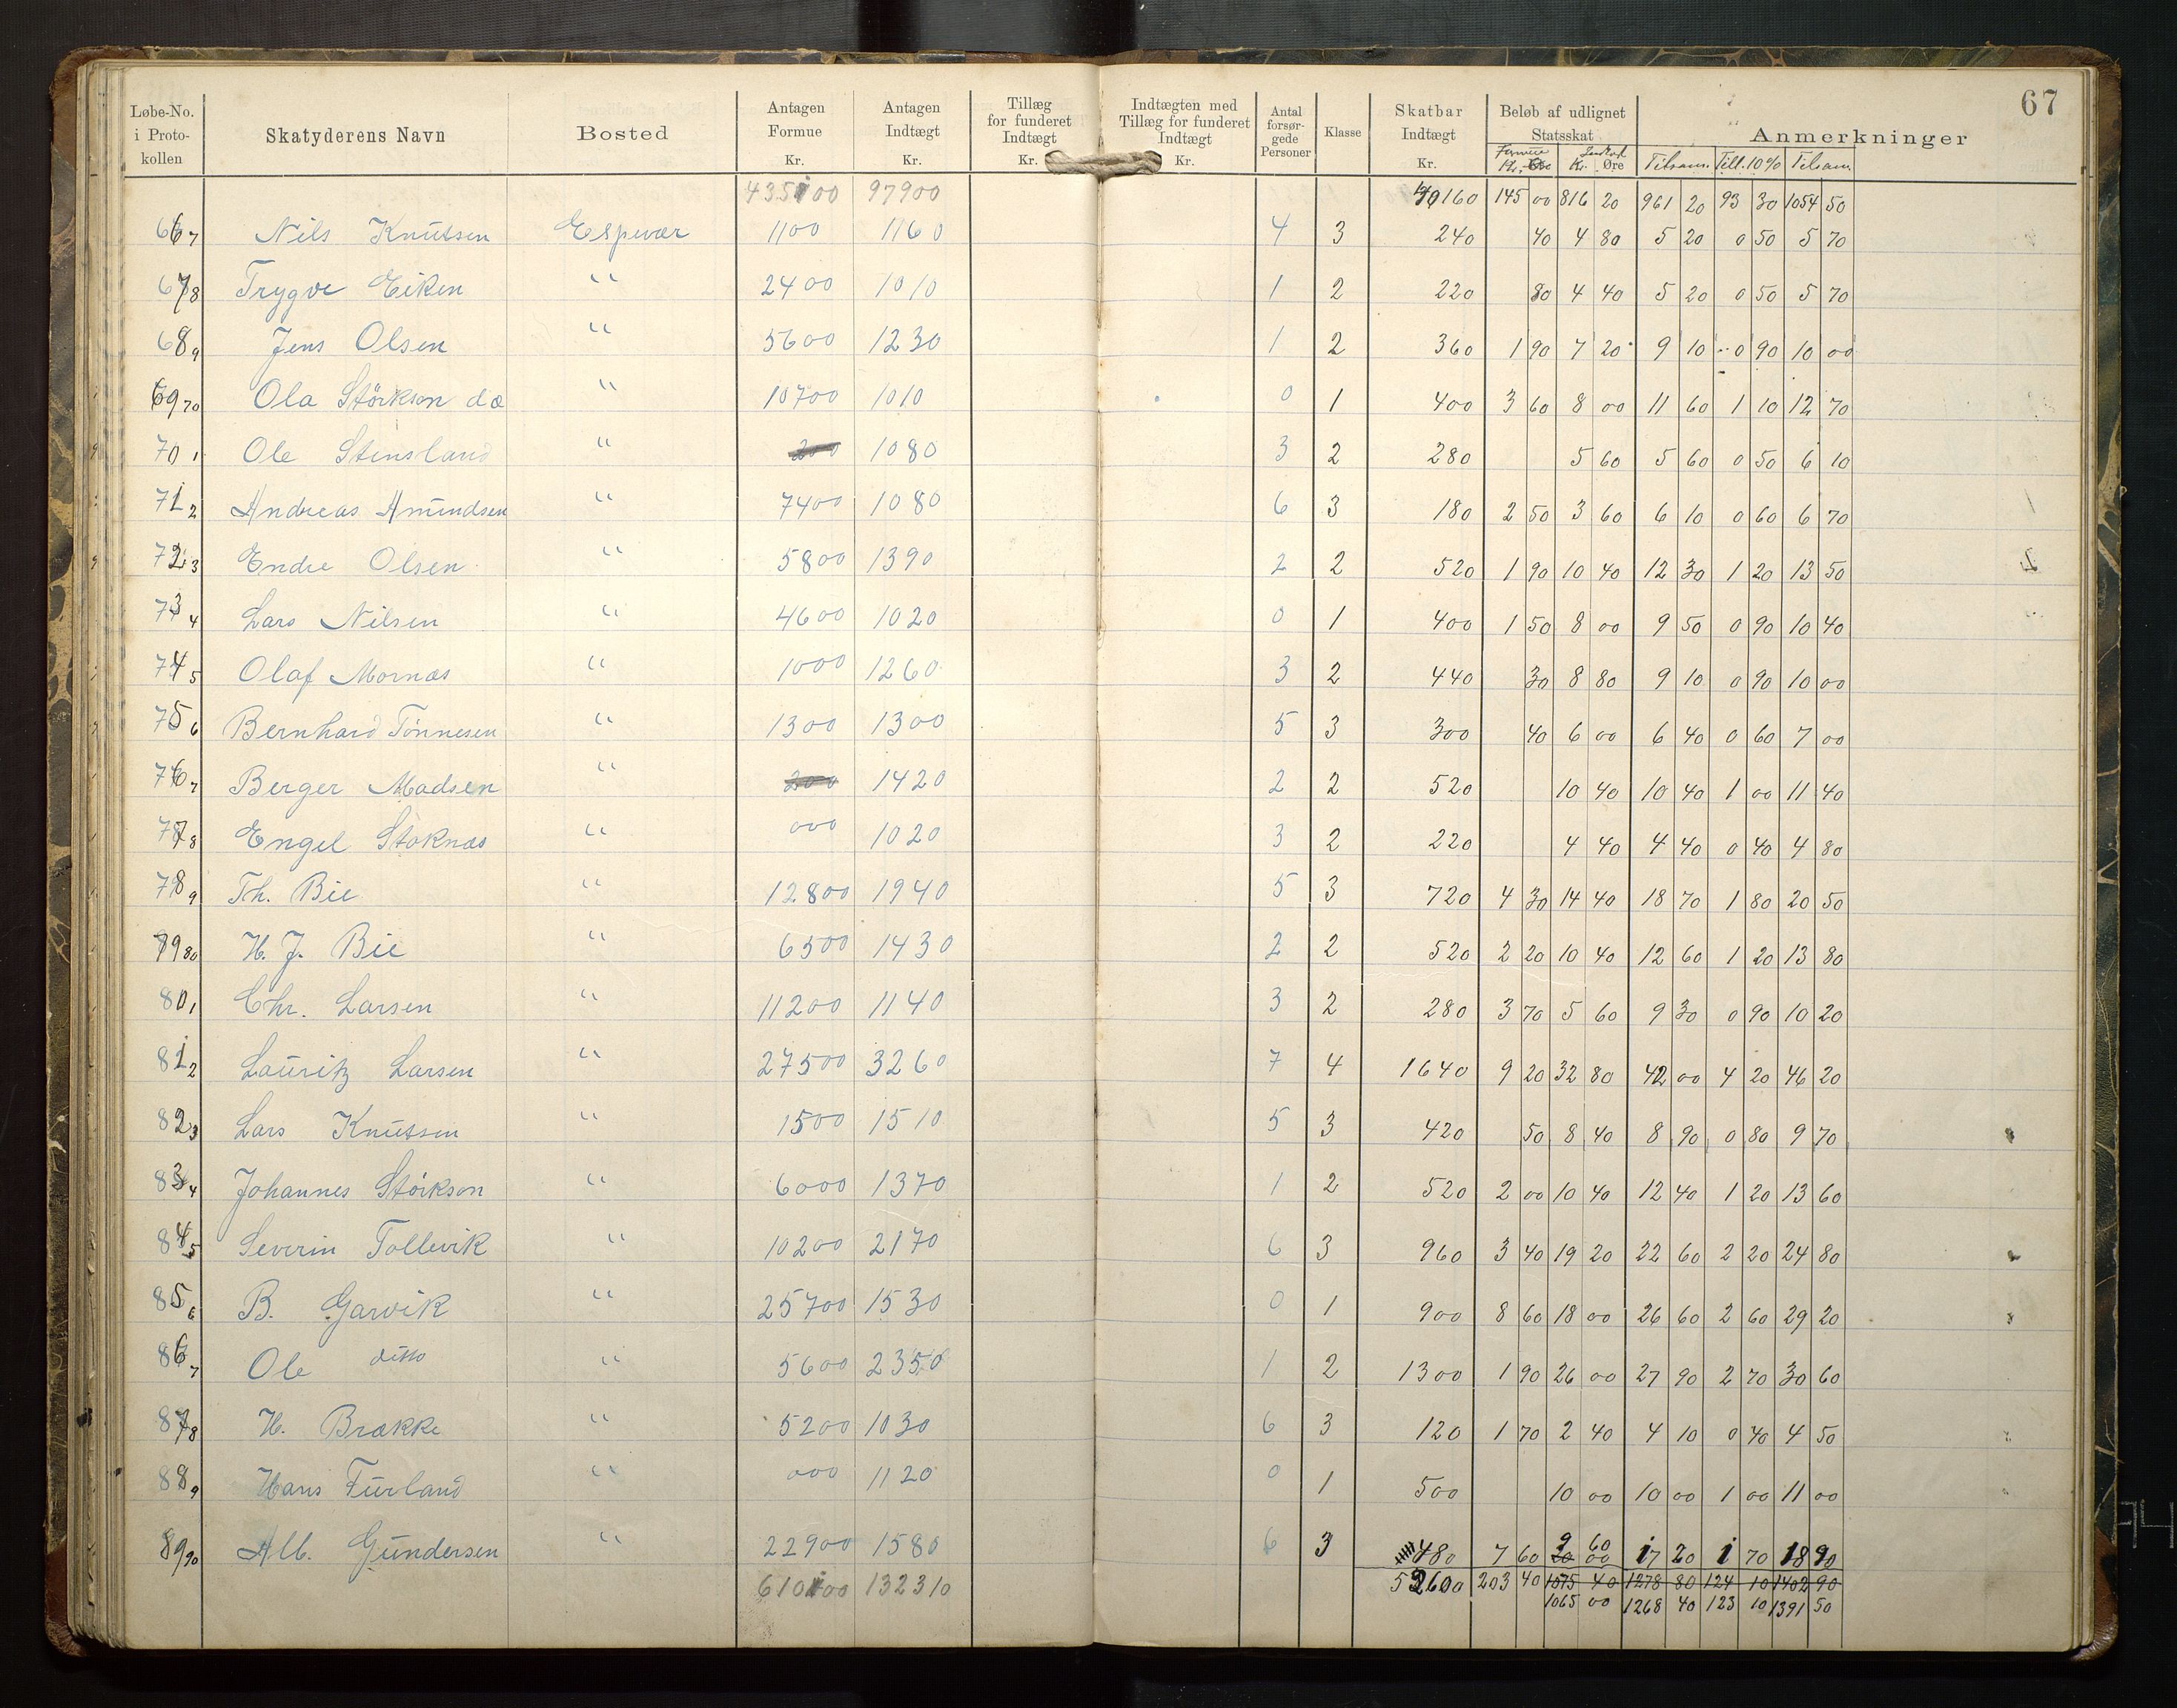 67
Løbe-No. i Proto-kollen | Skatyderens Navn | Bosted | Antagen Formue Kr. | Antagen Indtægt Kr. | Tillæg for funderet Indtægt Kr. | Indtægten med Tillæg for funderet Indtægt Kr. | Antal forsør-gede Personer | Klasse | Skatbar Indtægt Kr. | Beløb af udlignet Statsskat Formue Kr. Øre | Kr. Øre | Anmerkninger Tilsam. | Till. 10% | Tilsam.
97900 | 145 00 | 816 20 | 961 20 | 93 30 | 1054 50
Nils Knutsen | Espevær | 1100 | 1160 | 4 | 3 | 240 | 40 | 4 80 | 5 20 | 0 50 | 5 70
Trygve Eiken | " | 2400 | 1010 | 1 | 2 | 220 | 80 | 4 40 | 5 20 | 0 50 | 5 70
68 9 | Jens Olsen | " | 5600 | 1230 | 1 | 2 | 360 | 1 90 | 7 20 | 9 10 | 0 90 | 10 00
69 70 | Ola Störkson | " | 10700 | 1010 | 0 | 1 | 400 | 3 60 | 8 00 | 11 60 | 1 10 | 12 70
70 1 | Ole Stensland | " | 200 | 1080 | 3 | 2 | 280 | 5 60 | 5 60 | 0 50 | 6 10
71 2 | Andreas Amundsen | " | 7400 | 1080 | 6 | 3 | 180 | 2 50 | 3 60 | 6 10 | 0 60 | 6 70
72 3 | Endre Olsen | " | 5800 | 1390 | 2 | 2 | 520 | 1 90 | 10 40 | 12 30 | 1 20 | 13 50
73 4 | Lars Nilsen | " | 4600 | 1020 | 0 | 1 | 400 | 1 50 | 8 00 | 9 50 | 0 90 | 10 40
74 5 | Olaf Mornæs | " | 1000 | 1260 | 3 | 2 | 440 | 30 | 8 80 | 9 10 | 0 90 | 10 00
75 6 | Bernhard Tönnesen | " | 1300 | 1300 | 5 | 3 | 300 | 40 | 6 00 | 6 40 | 0 60 | 7 00
76 7 | Berger Madsen | " | 200 | 1420 | 2 | 2 | 520 | 10 40 | 10 40 | 1 00 | 11 40
77 8 | Engel Stoknæs | " | 000 | 1020 | 3 | 2 | 220 | 4 40 | 4 40 | 0 40 | 4 80
78 9 | Th. Bie | " | 12800 | 1940 | 5 | 3 | 720 | 4 30 | 14 40 | 18 70 | 1 80 | 20 50
79 80 | H. J. Bie | " | 6500 | 1430 | 2 | 2 | 520 | 2 20 | 10 40 | 12 60 | 1 20 | 13 80
80 1 | Chr. Larsen | " | 11200 | 1140 | 3 | 2 | 280 | 3 70 | 5 60 | 9 30 | 0 90 | 10 20
81 2 | Lauritz Larsen | " | 27500 | 3260 | 7 | 4 | 1640 | 9 20 | 32 80 | 42 00 | 4 20 | 46 20
82 3 | Lars Knutsen | " | 1500 | 1510 | 5 | 3 | 420 | 50 | 8 40 | 8 90 | 0 80 | 9 70
83 4 | Johannes Störkson | " | 6000 | 1370 | 1 | 2 | 520 | 2 00 | 10 40 | 12 40 | 1 20 | 13 60
84 5 | Severin Tollevik | " | 10200 | 2170 | 6 | 3 | 960 | 3 40 | 19 20 | 22 60 | 2 20 | 24 80
85 6 | B. Garvik | " | 25700 | 1530 | 0 | 1 | 900 | 8 60 | 18 00 | 26 60 | 2 60 | 29 20
86 7 | Ole ditto | " | 5600 | 2350 | 1 | 2 | 1300 | 1 90 | 26 00 | 27 90 | 2 70 | 30 60
87 8 | H. Brække | " | 5200 | 1030 | 6 | 3 | 120 | 1 70 | 2 40 | 4 10 | 0 40 | 4 50
88 9 | Hans Furland | " | 000 | 1120 | 0 | 1 | 500 | 10 00 | 10 00 | 1 00 | 11 00
89 90 | Alb. Gundersen | " | 22900 | 1580 | 6 | 3 | 480 | 7 60 | 9 60 | 17 20 | 1 70 | 18 90
132310 | 203 40 | 1075 40 | 1278 80 | 124 10 | 1402 90
1065 00 | 1268 40 | 123 10 | 1391 50